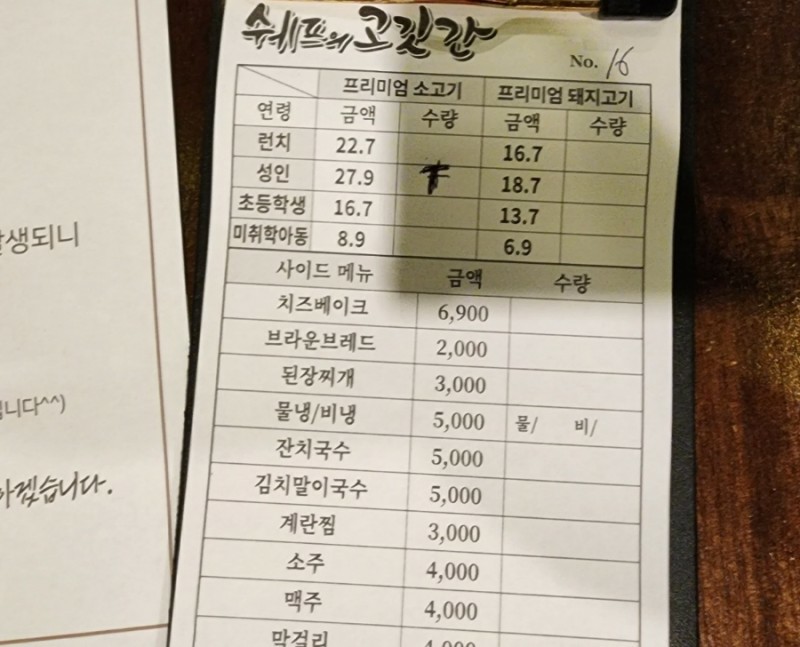 쉐프의 고깃간
No. 16
프리미엄 소고기 프리미엄 돼지고기
연령 금액 수량 금액 수량
런치 22.7 16.7
성인 27.9 18.7
초등학생 16.7 13.7
미취학아동 8.9 6.9
사이드 메뉴 금액 수량
치즈베이크 6,900
브라운브레드 2,000
된장찌개 3,000
물냉/비냉 5,000 물/ 비/
잔치국수 5,000
김치말이국수 5,000
계란찜 3,000
소주 4,000
맥주 4,000
막걸리
생되니
니다^^)
하겠습니다.